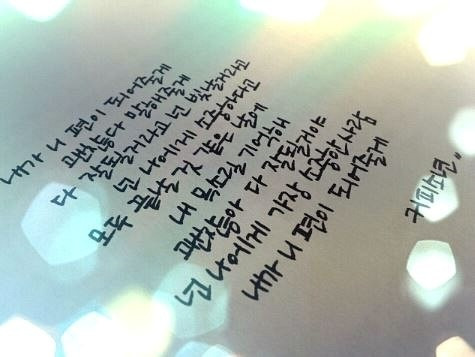 내가 니 편이 되어줄게
괜찮다 말해줄게
다 잘될거라고 넌 빛날거라고
넌 나에게 소중하다고
모두 끝날 것 같은 날에
내 목소릴 기억해
괜찮아 다 잘될거야
넌 나에게 가장 소중한사람
내가 니 편이 되어줄게
커피소년。